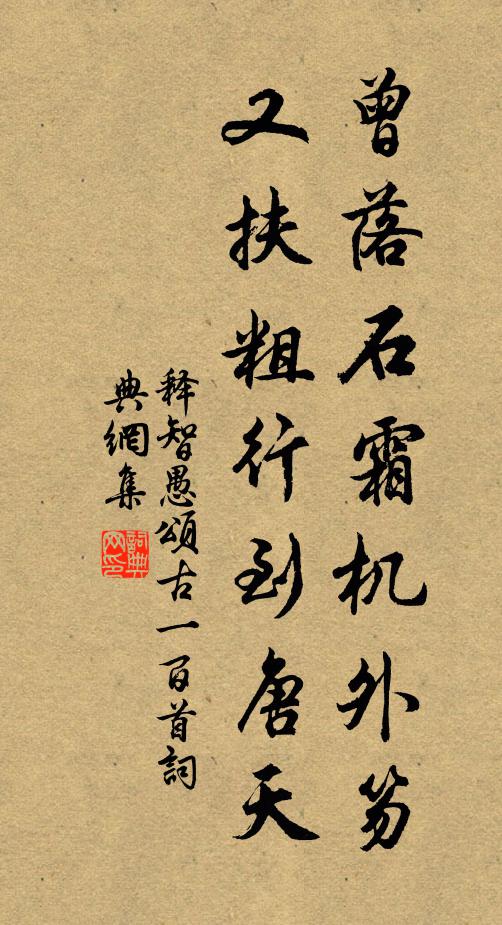 曾落石霜机外笏
又扶粗行到唐天
释智愚頌古一百首詞
典網集
詞典
网印